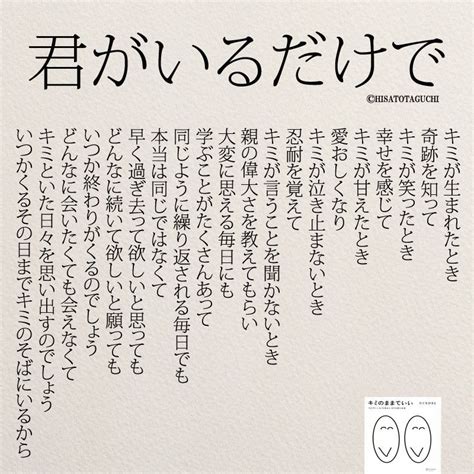 君がいるだけで
©HISATOTAGUCHI
キミが生まれたとき
奇跡を知って
キミが笑ったとき
幸せを感じて
キミが甘えたとき
愛おしくなり
キミが泣き止まないとき
忍耐を覚えて
キミが言うことを聞かないとき
親の偉大さを教えてもらい
大変に思える毎日にも
学ぶことがたくさんあって
同じように繰り返される毎日でも
本当は同じではなくて
早く過ぎ去って欲しいと思っても
どんなに続いて欲しいと願っても
いつか終わりがくるのでしょう
どんなに会いたくても会えなくて
キミといた日々を思い出すのでしょう
いつかくるその日までキミのそばにいるから
キミのままでいい